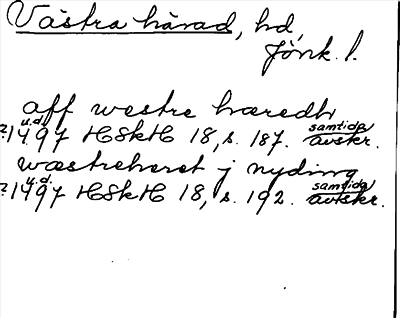 Västra härad, hd,
Jönk. l.
aff westre hæredh
u.d.
?1497 HSkH 18, s. 187. samtida avskr.
wæstreheret j nyding
u.d.
?1497 HSkH 18, s. 192. samtida avskr.